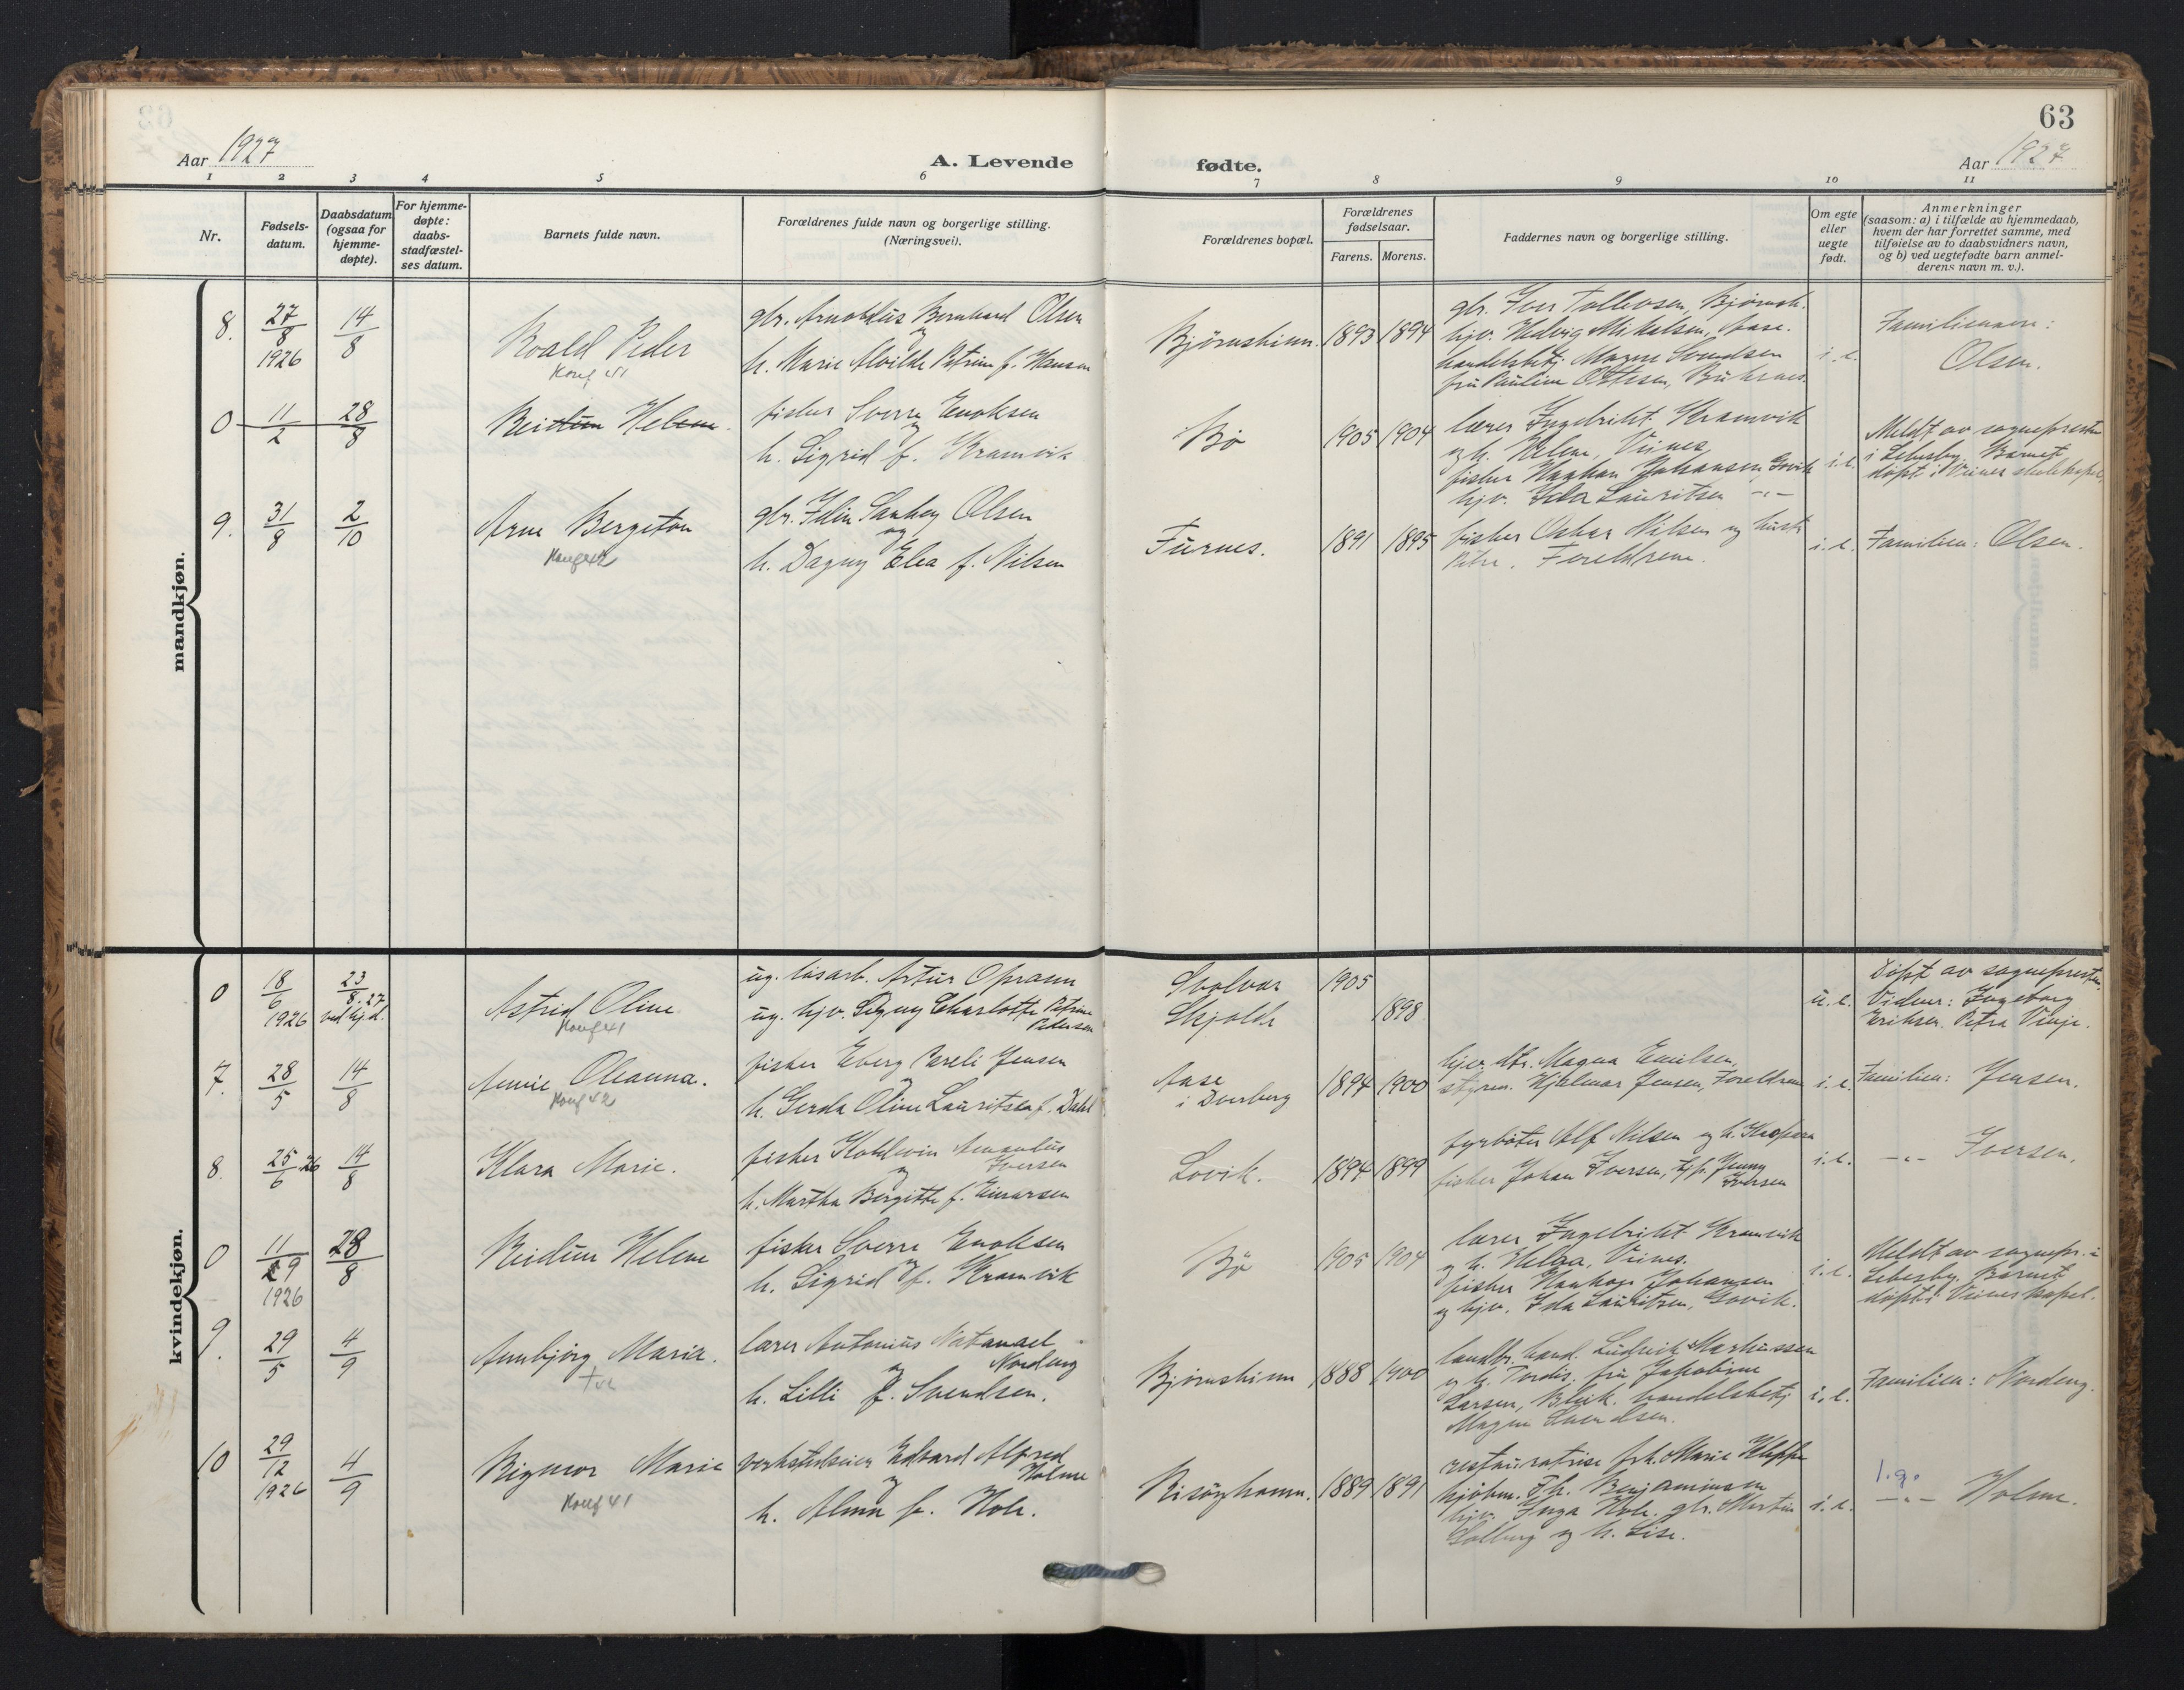 63
Aar 1927
A. Levende
fødte.
Aar 1927
1 2 3 4 5 6 7 8 9 10 11
Nr.
Fødsels-
datum.
Daabsdatum
(ogsaa for
hjemme-
døpte).
For hjemme-
døpte:
daabs-
stadfæstel-
ses datum.
Barnets fulde navn.
Forældrenes fulde navn og borgerlige stilling.
(Næringsvei).
Forældrenes bopæl.
Forældrenes
fødselsaar.
Farens. Morens.
Faddernes navn og borgerlige stilling.
Om egte
eller
uegte
født.
Anmerkninger
(saasom: a) i tilfælde av hjemmedaab,
hvem der har forrettet samme, med
tilføielse av to daabsvidners navn,
og b) ved uegtefødte barn anmel-
derens navn m. v.).
mandkjøn.
8. 27/8 1926 14/8
Roald Peder
Konf 41
gbr. Arnoldus Bernhard Olsen
og
h. Marie Alvilde Petrine f. Hansen
Bjørnskinn. 1893 1894
gbr. Iver Tollevsen, Bjørnsk.
hjv. Hedvig Mikalsen, Aase.
handelsbetj. Magne Svendsen
fru Pauline Ottesen, Buknes.
i. e.
Familienavn:
Olsen.
0 11/2 28/8
Reidun Helene.
fisker Sverre Enoksen
og
h. Sigrid f. Kramvik
Bø 1905 1904
lærer Ingebrikt Kramvik
og h. Helene, Veines
fisker Haakon Johansen, Govik
hjv. Ida Lauritsen -"-
i. e.
Meldt av sognepresten
i Lebesby. Barnet
døpt i Veines skolekapel.
9. 31/8 2/10
Arne Bergeton
Konf 42
gbr. Edin Sankey Olsen
og
h. Dagny Elea f. Nilsen
Furnes. 1891 1895
fisker Oskar Nilsen og hustr.
Petra. Foreldrene.
i. e.
Familien: Olsen.
kvindekjøn.
0 18/6 1926 23/8.27 ved hj.d.
Astrid Oline
Konf 41
ug. løsarb. Artur Opsann
ug. hjv. Signy Charlotte Petrine
Pedersen
Svolvær 1905
Skjolde 1898
u. e.
Døpt av sognepresten.
Vidner: Ingeborg
Eriksen. Petra Vinje.
7. 28/5 14/8
Annie Oleanna.
Konf 42
fisker Eberg Pareli Jensen
og
h. Gerda Oline Lauritsen f. Dahl
Aase
i Dverberg 1894 1900
hjv. dtr. Magna Emilsen,
styrm. Hjalmar Jensen, Foreldrene
i. e.
Familien: Jensen.
8. 25/6 26 14/8
Klara Marie.
fisker Koldevin Amandus
Iversen
og
h. Martha Bergitte f. Einarsen
Lovik. 1894 1899
fyrbøter Alf Nilsen og h. Kaspara
fisker Johan Iversen, hj.p. Jenny
Iversen
i. e.
-"- Iversen.
0 11/9 1926 28/8
Reidun Helene
fisker Sverre Enoksen
og
h. Sigrid f. Kramvik
Bø 1905 1904
lærer Ingebrikt Kramvik
og h. Helga, Veines.
fisker Haakon Johansen
og hjv. Ida Lauritzen, Govik.
i. e.
Meldt av sognepr. i
Lebesby. Barnet
døpt i Veines kapel.
9. 29/5 4/9
Annbjørg Marie.
lærer Antonius Natanael
Nordeng
og
h. Lilli f. Svendsen.
Bjørnskinn 1888 1900
landbr. kand. Ludvik Markussen
og h. Tordis. fru Jakobine
Larsen, Bleik. handelsbetj
Magne Svendsen.
i. e.
Familien: Nordeng.
10 29/12 1926 4/9
Rigmor Marie
Konf 41
verkstedseier Edvard Alfred
Holme
og
h. Alma f. Hole.
Risøyhamn. 1889 1891
restauratrise frk. Marie Kleppe
kjøbm. Fh. Benjaminsen
hjv. Inga Hole. gbr. Martin
Solberg og h. Lise.
i. e.
-"- Holme.